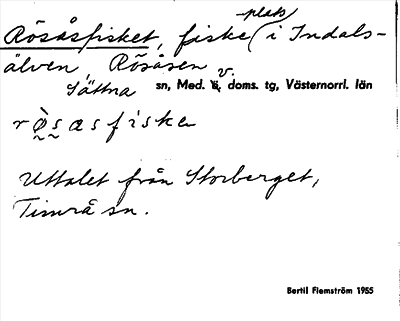 Rösåsfisket, fiske(plats) i Indals-
älven, Rösåsen
Sättna sn, Med. v. doms. tg, Västernorrl. län
Uttalet från Storberget,
Timrå sn.
Bertil Flemström 1955